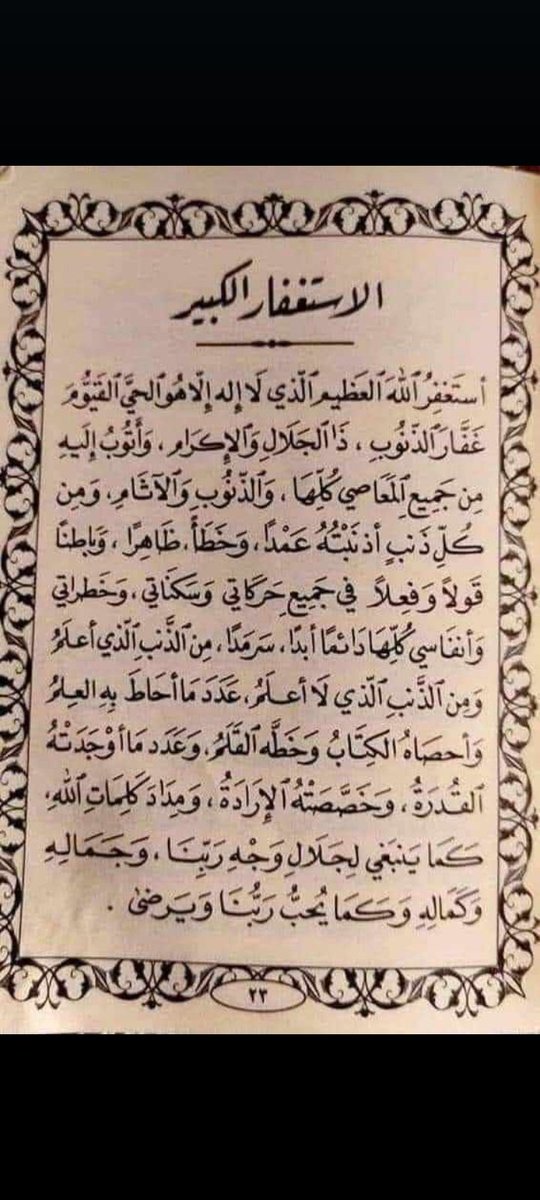 الاستغفار الكبير
أستَغفِرُ اللهَ العَظيم الّذي لَا إله إلّا هُو الحيَّ القَيُّومَ
غَفَّارَ الذّنُوبِ ، ذَا الجَلَالِ وَالإكرَامِ ، وَأتُوبُ إلَيهِ
مِن جَمِيعِ المَعَاصِي كُلِّهَا ، وَالذّنُوبِ وَالآثَامِ ، وَمِن
كُلِّ ذَنبٍ أذنَبْتُهُ عَمْدًا ، وَخَطَأً ، ظَاهِرًا ، وَبَاطنًا
قَولاً وَفعلاً في جَميعِ حَركَاتي وَسَكنَاتي ، وَخَطرَاتي
وَأنفَاسي كُلِّهَا دَائمًا أبدًا ، سَرمَدًا ، مِن الذَّنبِ الّذي أعلَمُ
وَمِن الذَّنبِ الّذي لَا أعلَمُ ، عَدَدَ مَا أحَاطَ بِهِ العِلمُ
وَأحصَاهُ الكِتَابُ وَخَطَّه القَلَمُ ، وَعَدَد مَا أوْجَدَتْهُ
القُدرَةُ ، وَخَصَّصَتْهُ الإرَادَةُ ، وَمِدَادَ كَلِمَاتِ اللهِ ،
كَمَا يَنبَغي لِجَلَالِ وَجْهِ رَبِّنَا ، وَجَمَالِهِ
وَكَمَالِهِ وَكَمَا يُحبُّ رَبُّنَا وَيَرضىٰ .
٢٣